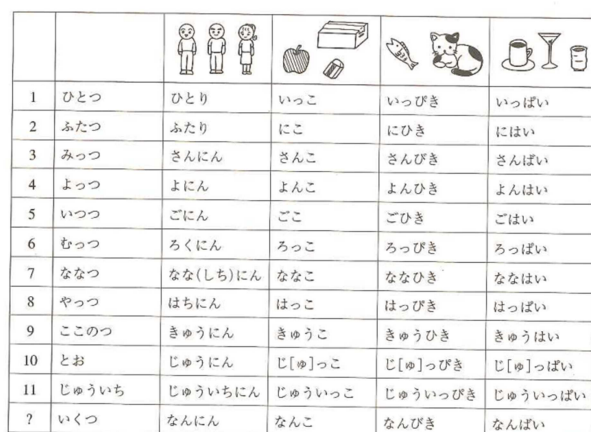 1 ひとつ ひとり いっこ いっぴき いっぱい
2 ふたつ ふたり にこ にひき にはい
3 みっつ さんにん さんこ さんびき さんばい
4 よっつ よにん よんこ よんひき よんはい
5 いつつ ごにん ごこ ごひき ごはい
6 むっつ ろくにん ろっこ ろっぴき ろっぱい
7 ななつ なな(しち)にん ななこ ななひき ななはい
8 やっつ はちにん はっこ はっぴき はっぱい
9 ここのつ きゅうにん きゅうこ きゅうひき きゅうはい
10 とお じゅうにん じ[ゅ]っこ じ[ゅ]っぴき じ[ゅ]っぱい
11 じゅういち じゅういちにん じゅういっこ じゅういっぴき じゅういっぱい
? いくつ なんにん なんこ なんびき なんばい